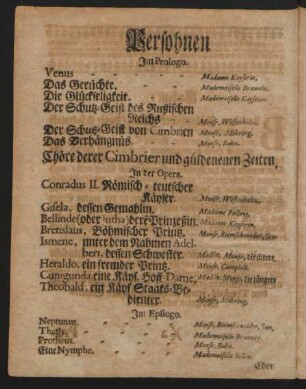 Persohnen
Im Prologo.
Venus - - - Madame Kayserin.
Das Gerüchte. - - Mademoiselle Braunin.
Die Glückseligkeit. - Mademoiselle Kayserin.
Der Schutz-Geist des Rußischen
Reichs - Mons.
Der Schutz-Geist von Cimbrien Mons. Möhring.
Das Verhängnüs. - Mons. Bahn.
Chöre derer Cimbrier und güldenenen Zeiten.
In der Opera.
Conradus II. Römisch-teutscher
Käyser. Mons.
Gisela, dessen Gemahlin. Madame
Bellinde (oder Jutha) dere Printzeßin. Madame Kayserin.
Bretislaus, Böhmischer Printz. Mons. Riemschneider, Sen.
Ismene, unter dem Nahmen Adel-
bert, dessen Schwester. Madlle. die ältere.
Heraldo, ein fremder Printz. Mons. Campioli.
Cunigunda, eine Käyl. Hof-Dame. Madlle. die jüngere
Theobald, ein Käyl. Staats-Be-
dienter. Mons. Möhring.
Im Epilogo.
Neptunus. - Mons. Riemschneider, Jun.
Thetis. - Mademoiselle Braunin.
Protheus. - Mons. Bahn.
Eine Nymphe. - Mademoiselle
Eber